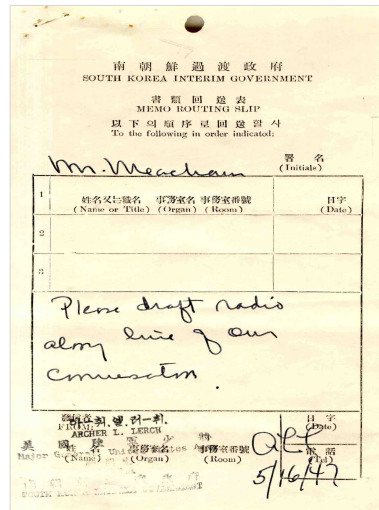 南朝鮮過渡政府
SOUTH KOREA INTERIM GOVERNMENT
書類回送表
MEMO ROUTING SLIP
以下의順序로回送할사
To the following in order indicated:
署名
(Initials)
Mr. Meacham
1
姓名又는職名 事務室名 事務室番號 日字
(Name or Title) (Organ) (Room) (Date)
2
3
Please draft radio
along line of our
conversation.
FROM:
ARCHER L. LERCH
日字
(Date)
Major General United States Army
(Name) (Organ) (Room) (Tel)
ALL
5/16/47
SOUTH KOREA INTERIM GOVERNMENT